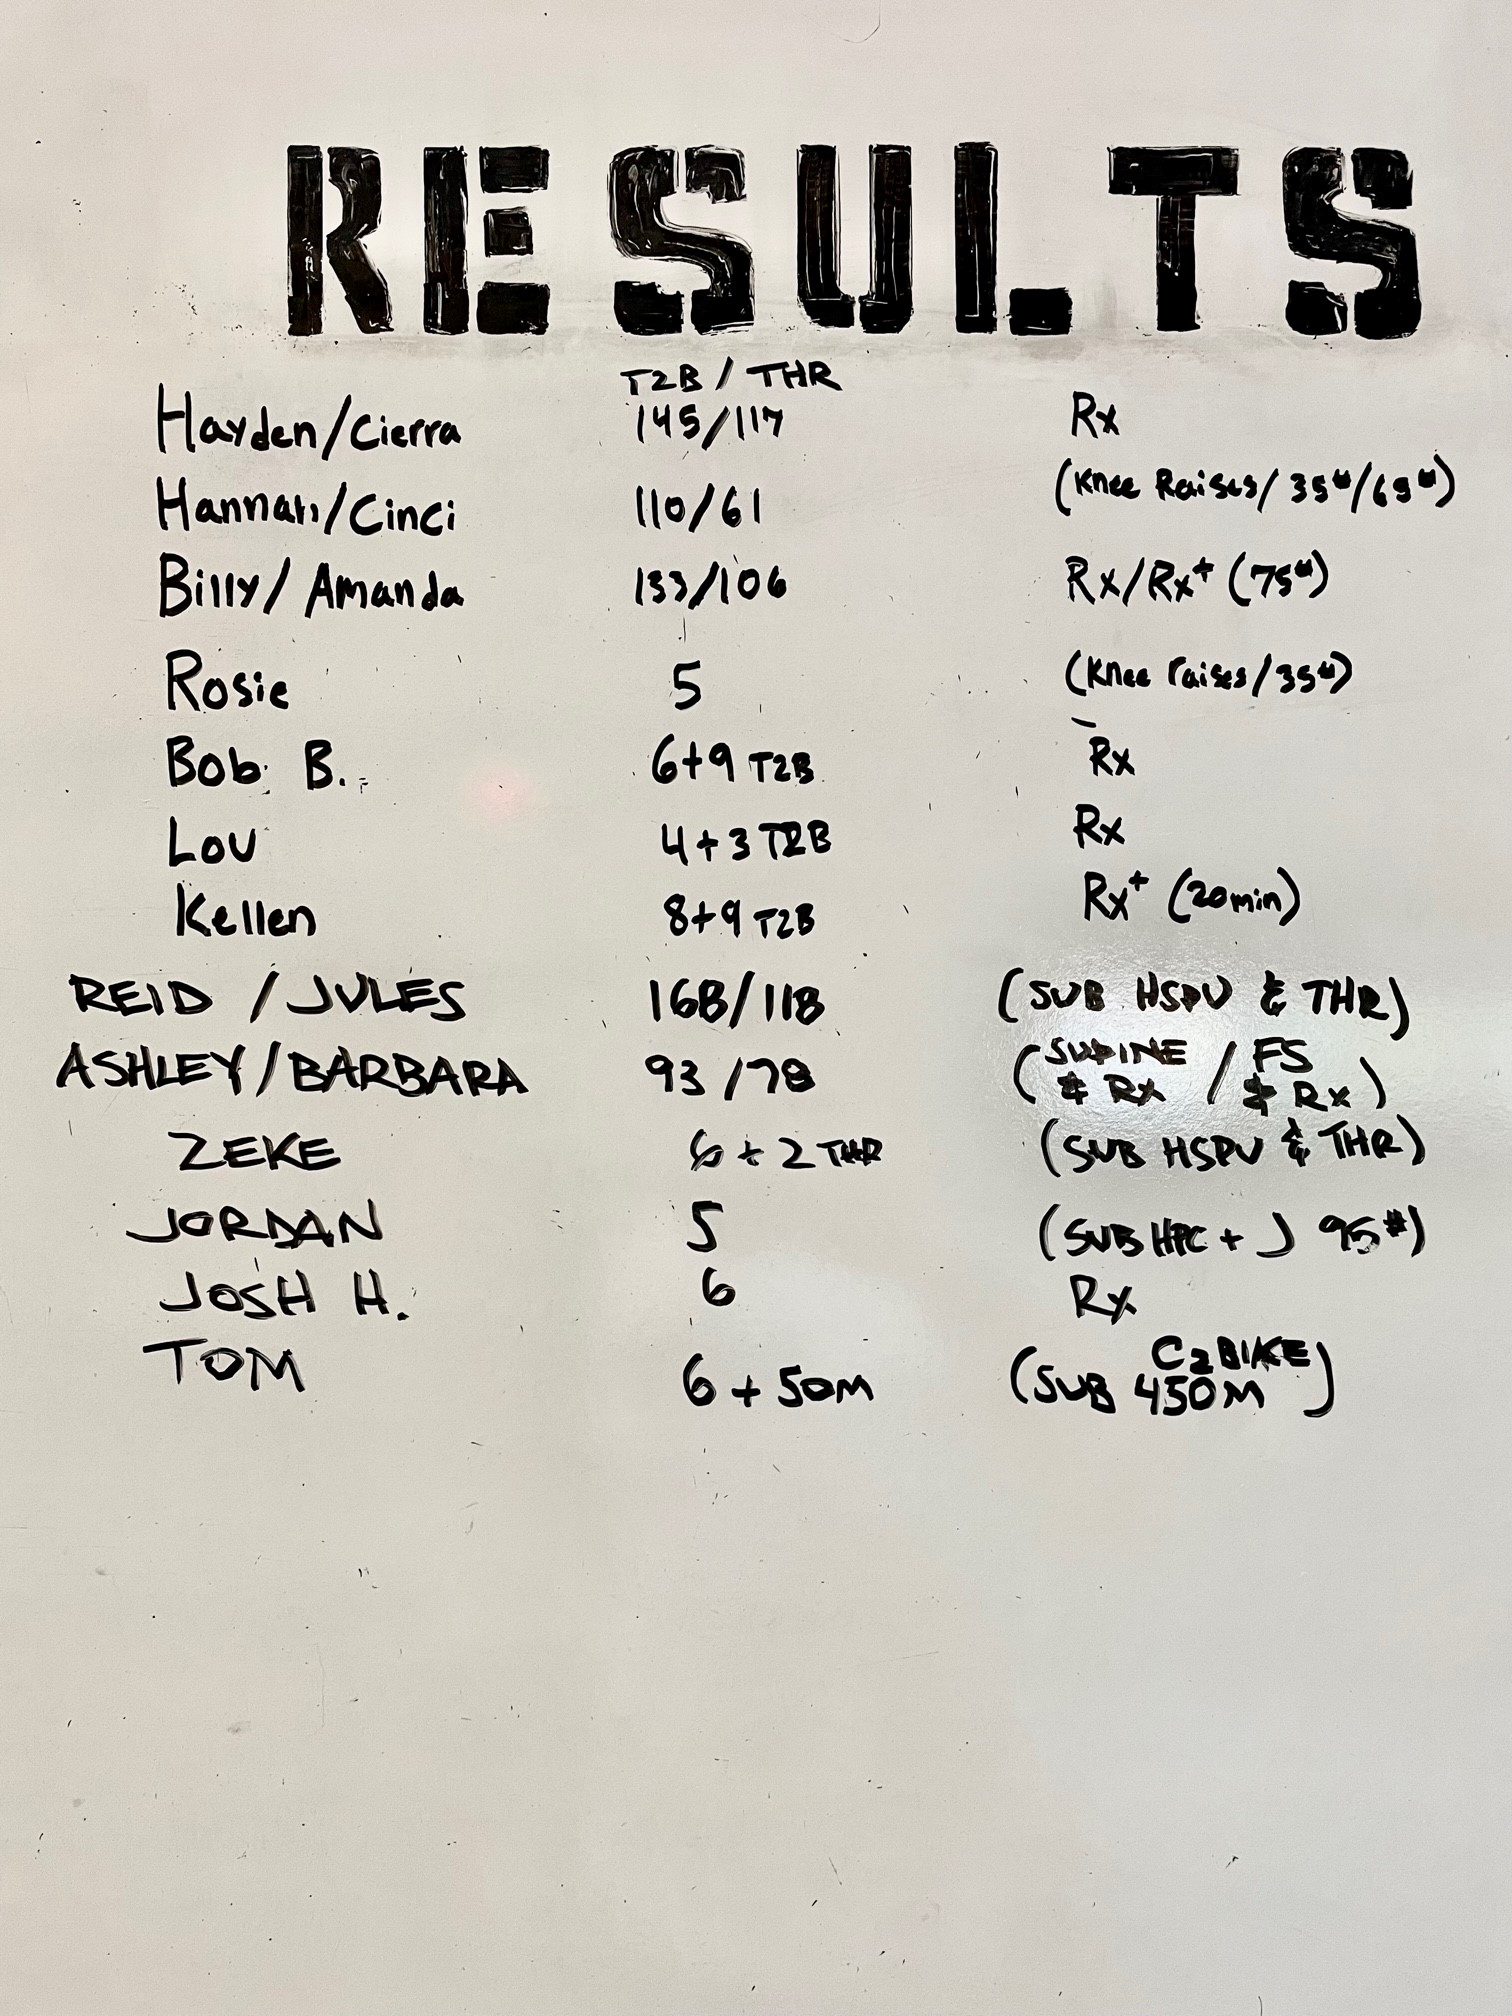 RESULTS
T2B / THR
Hayden/Cierra 145/117 Rx
Hannah/Cinci 110/61 (Knee Raises/35#/65#)
Billy/Amanda 133/106 Rx/Rx+ (75#)
Rosie 5 (Knee raises/35#)
Bob B. 6+9 T2B Rx
Lou 4+3 T2B Rx
Kellen 8+9 T2B Rx+ (20min)
REID / JULES 168/118 (SUB HSPU & THR)
ASHLEY/BARBARA 93/78 (SUPINE & Rx / FS & Rx)
ZEKE 6 + 2 THR (SUB HSPU & THR)
JORDAN 5 (SUB HPC + J 95#)
JOSH H. 6 Rx
TOM 6 + 50M (SUB 450M C2BIKE)